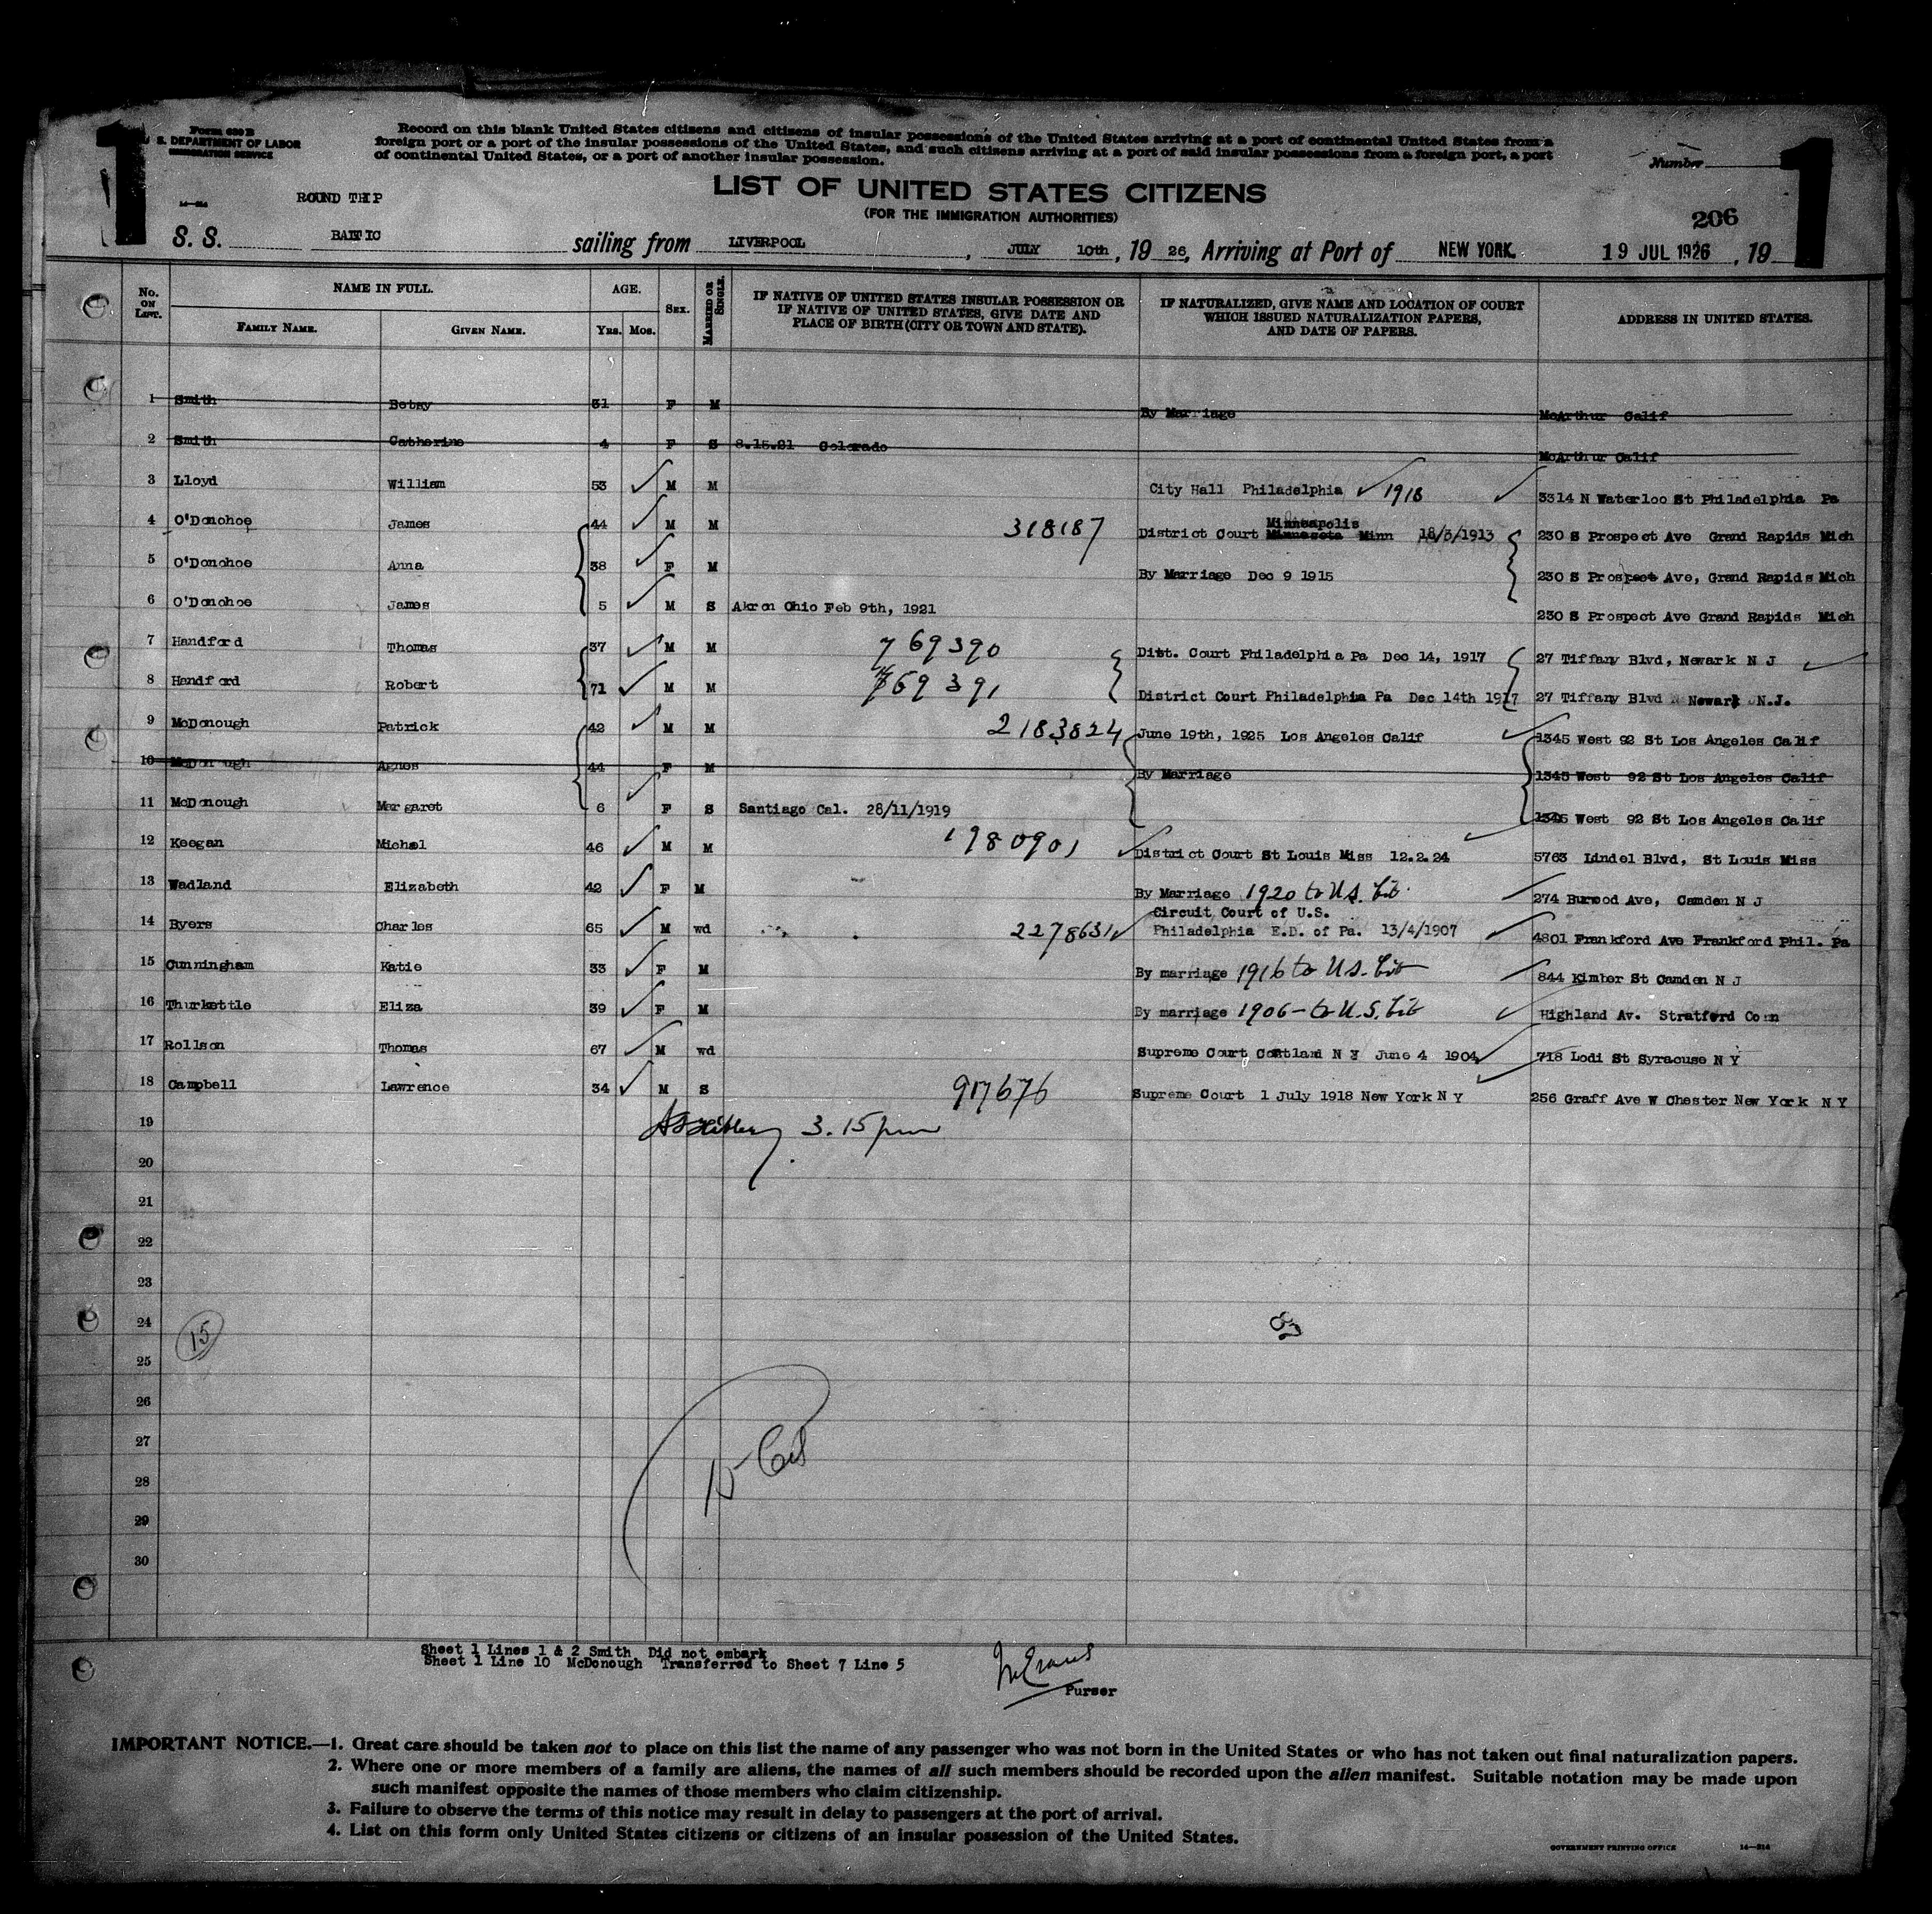 1
1
Form 630 B
U. S. DEPARTMENT OF LABOR
IMMIGRATION SERVICE
Record on this blank United States citizens and citizens of insular possessions of the United States arriving at a port of continental United States from a
foreign port or a port of the insular possessions of the United States, and such citizens arriving at a port of said insular possessions from a foreign port, a port
of continental United States, or a port of another insular possession.
Number
LIST OF UNITED STATES CITIZENS
(FOR THE IMMIGRATION AUTHORITIES)
14—314
ROUND TRIP
206
S. S. BALTIC sailing from LIVERPOOL, JULY 10th, 19 26, Arriving at Port of NEW YORK. 19 JUL 1926, 19
No. on List.
NAME IN FULL.
Family Name.
Given Name.
AGE.
Yrs. Mos.
Sex.
Married or Single.
IF NATIVE OF UNITED STATES INSULAR POSSESSION OR
IF NATIVE OF UNITED STATES, GIVE DATE AND
PLACE OF BIRTH (CITY OR TOWN AND STATE).
IF NATURALIZED, GIVE NAME AND LOCATION OF COURT
WHICH ISSUED NATURALIZATION PAPERS,
AND DATE OF PAPERS.
ADDRESS IN UNITED STATES.
1 Smith Betsy 31 F M By Marriage McArthur Calif
2 Smith Catherine 4 F S 8.15.21 Colorado McArthur Calif
3 Lloyd William 53 M M City Hall Philadelphia 1918 3314 N Waterloo St Philadelphia Pa
4 O'Donohoe James 44 M M 318187 District Court Minnesota Minneapolis Minn 18/3/1913 230 S Prospect Ave Grand Rapids Mich
5 O'Donohoe Anna 38 F M By Marriage Dec 9 1915 230 S Prospect Ave, Grand Rapids Mich
6 O'Donohoe James 5 M S Akron Ohio Feb 9th, 1921 230 S Prospect Ave Grand Rapids Mich
7 Handford Thomas 37 M M 769390 Dist. Court Philadelphia Pa Dec 14, 1917 27 Tiffany Blvd, Newark N J
8 Handford Robert 71 M M 769391 District Court Philadelphia Pa Dec 14th 1917 27 Tiffany Blvd Newark N.J.
9 McDonough Patrick 42 M M 2183824 June 19th, 1925 Los Angeles Calif 1345 West 92 St Los Angeles Calif
10 McDonough Agnes 44 F M By Marriage 1345 West 92 St Los Angeles Calif
11 McDonough Margaret 6 F S Santiago Cal. 28/11/1919 1345 West 92 St Los Angeles Calif
12 Keegan Michael 46 M M 1980901 District Court St Louis Miss 12.2.24 5763 Lindel Blvd, St Louis Miss
13 Wadland Elizabeth 42 F M By Marriage 1920 to U.S. Cit. 274 Burwood Ave, Camden N J
14 Byers Charles 65 M wd 2278631 Circuit Court of U.S.
Philadelphia E.D. of Pa. 13/4/1907 4801 Frankford Ave Frankford Phil. Pa
15 Cunningham Katie 33 F M By marriage 1916 to U.S. Cit 844 Kimber St Camden N J
16 Thurkettle Eliza 39 F M By marriage 1906 - to U.S. Cit Highland Av. Stratford Conn
17 Rollson Thomas 67 M wd Supreme Court Cortland N Y June 4 1904 718 Lodi St Syracuse N Y
18 Campbell Lawrence 34 M S 917676 Supreme Court 1 July 1918 New York N Y 256 Graff Ave W Chester New York N Y
19 3.15 pm
20
21
22
23
24
15
25
26
27
28
29
30
15 Cit
Sheet 1 Lines 1 & 2 Smith Did not embark
Sheet 1 Line 10 McDonough Transferred to Sheet 7 Line 5
Purser
IMPORTANT NOTICE.—1. Great care should be taken not to place on this list the name of any passenger who was not born in the United States or who has not taken out final naturalization papers.
2. Where one or more members of a family are aliens, the names of all such members should be recorded upon the alien manifest. Suitable notation may be made upon
such manifest opposite the names of those members who claim citizenship.
3. Failure to observe the terms of this notice may result in delay to passengers at the port of arrival.
4. List on this form only United States citizens or citizens of an insular possession of the United States.
GOVERNMENT PRINTING OFFICE 14—314